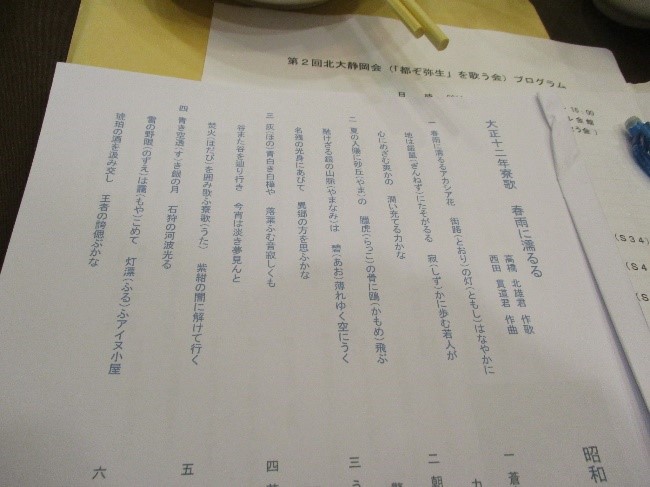 第2回北大静岡会(「都ぞ弥生」を歌う会)プログラム
16:00
(S34)
(S4
大正十二年寮歌　春雨に濡るる
高橋 北雄君 作歌
西田 貫道君 作曲
一 春雨に濡るるアカシア花　街路(とおり)の灯(ともし)はなやかに
地は銀鼠(ぎんねず)にたそがるる　寂(しず)かに歩む若人が
心にめざむ男かの　潤い充てる力かな
二 夏の人陽に砂丘(やま)の　臘虎(らっこ)の骨に鴎(かもめ)飛ぶ
融けざる越の山脈(やまなみ)は　碧(あお)薄れゆく空にうく
名残の光身にあびて　異郷の方を思ふかな
三 灰(ほの)青白き白樺や　落葉ふむ音寂しくも
谷また谷を辿り行き　今宵は淡き夢見んと
焚火(ほだび)を囲み歌ふ寮歌(うた)　紫紺の闇に解けて行く
四 青き空透(す)き銀の月　石狩の河波光る
雪の野暇(のずえ)は靄(もや)こめて　灯藻(ふる)ふアイヌ小屋
琥珀の酒を汲み交し　王者の誇偲ぶかな
昭和
一 蒼
二 朝
三 う
四
五
六